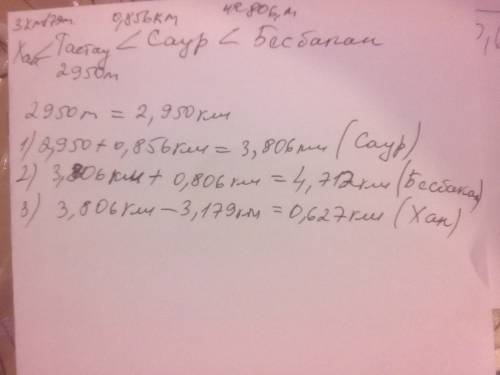 0,856км
Хан < Тастау < Саур < Бесбапан
2950м
2950м = 2,950км
1) 2,950 + 0,856км = 3,806км (Саур)
2) 3,806км + 0,806км = 4,712км (Бесбапан)
3) 3,806км − 3,179км = 0,627км (Хан)